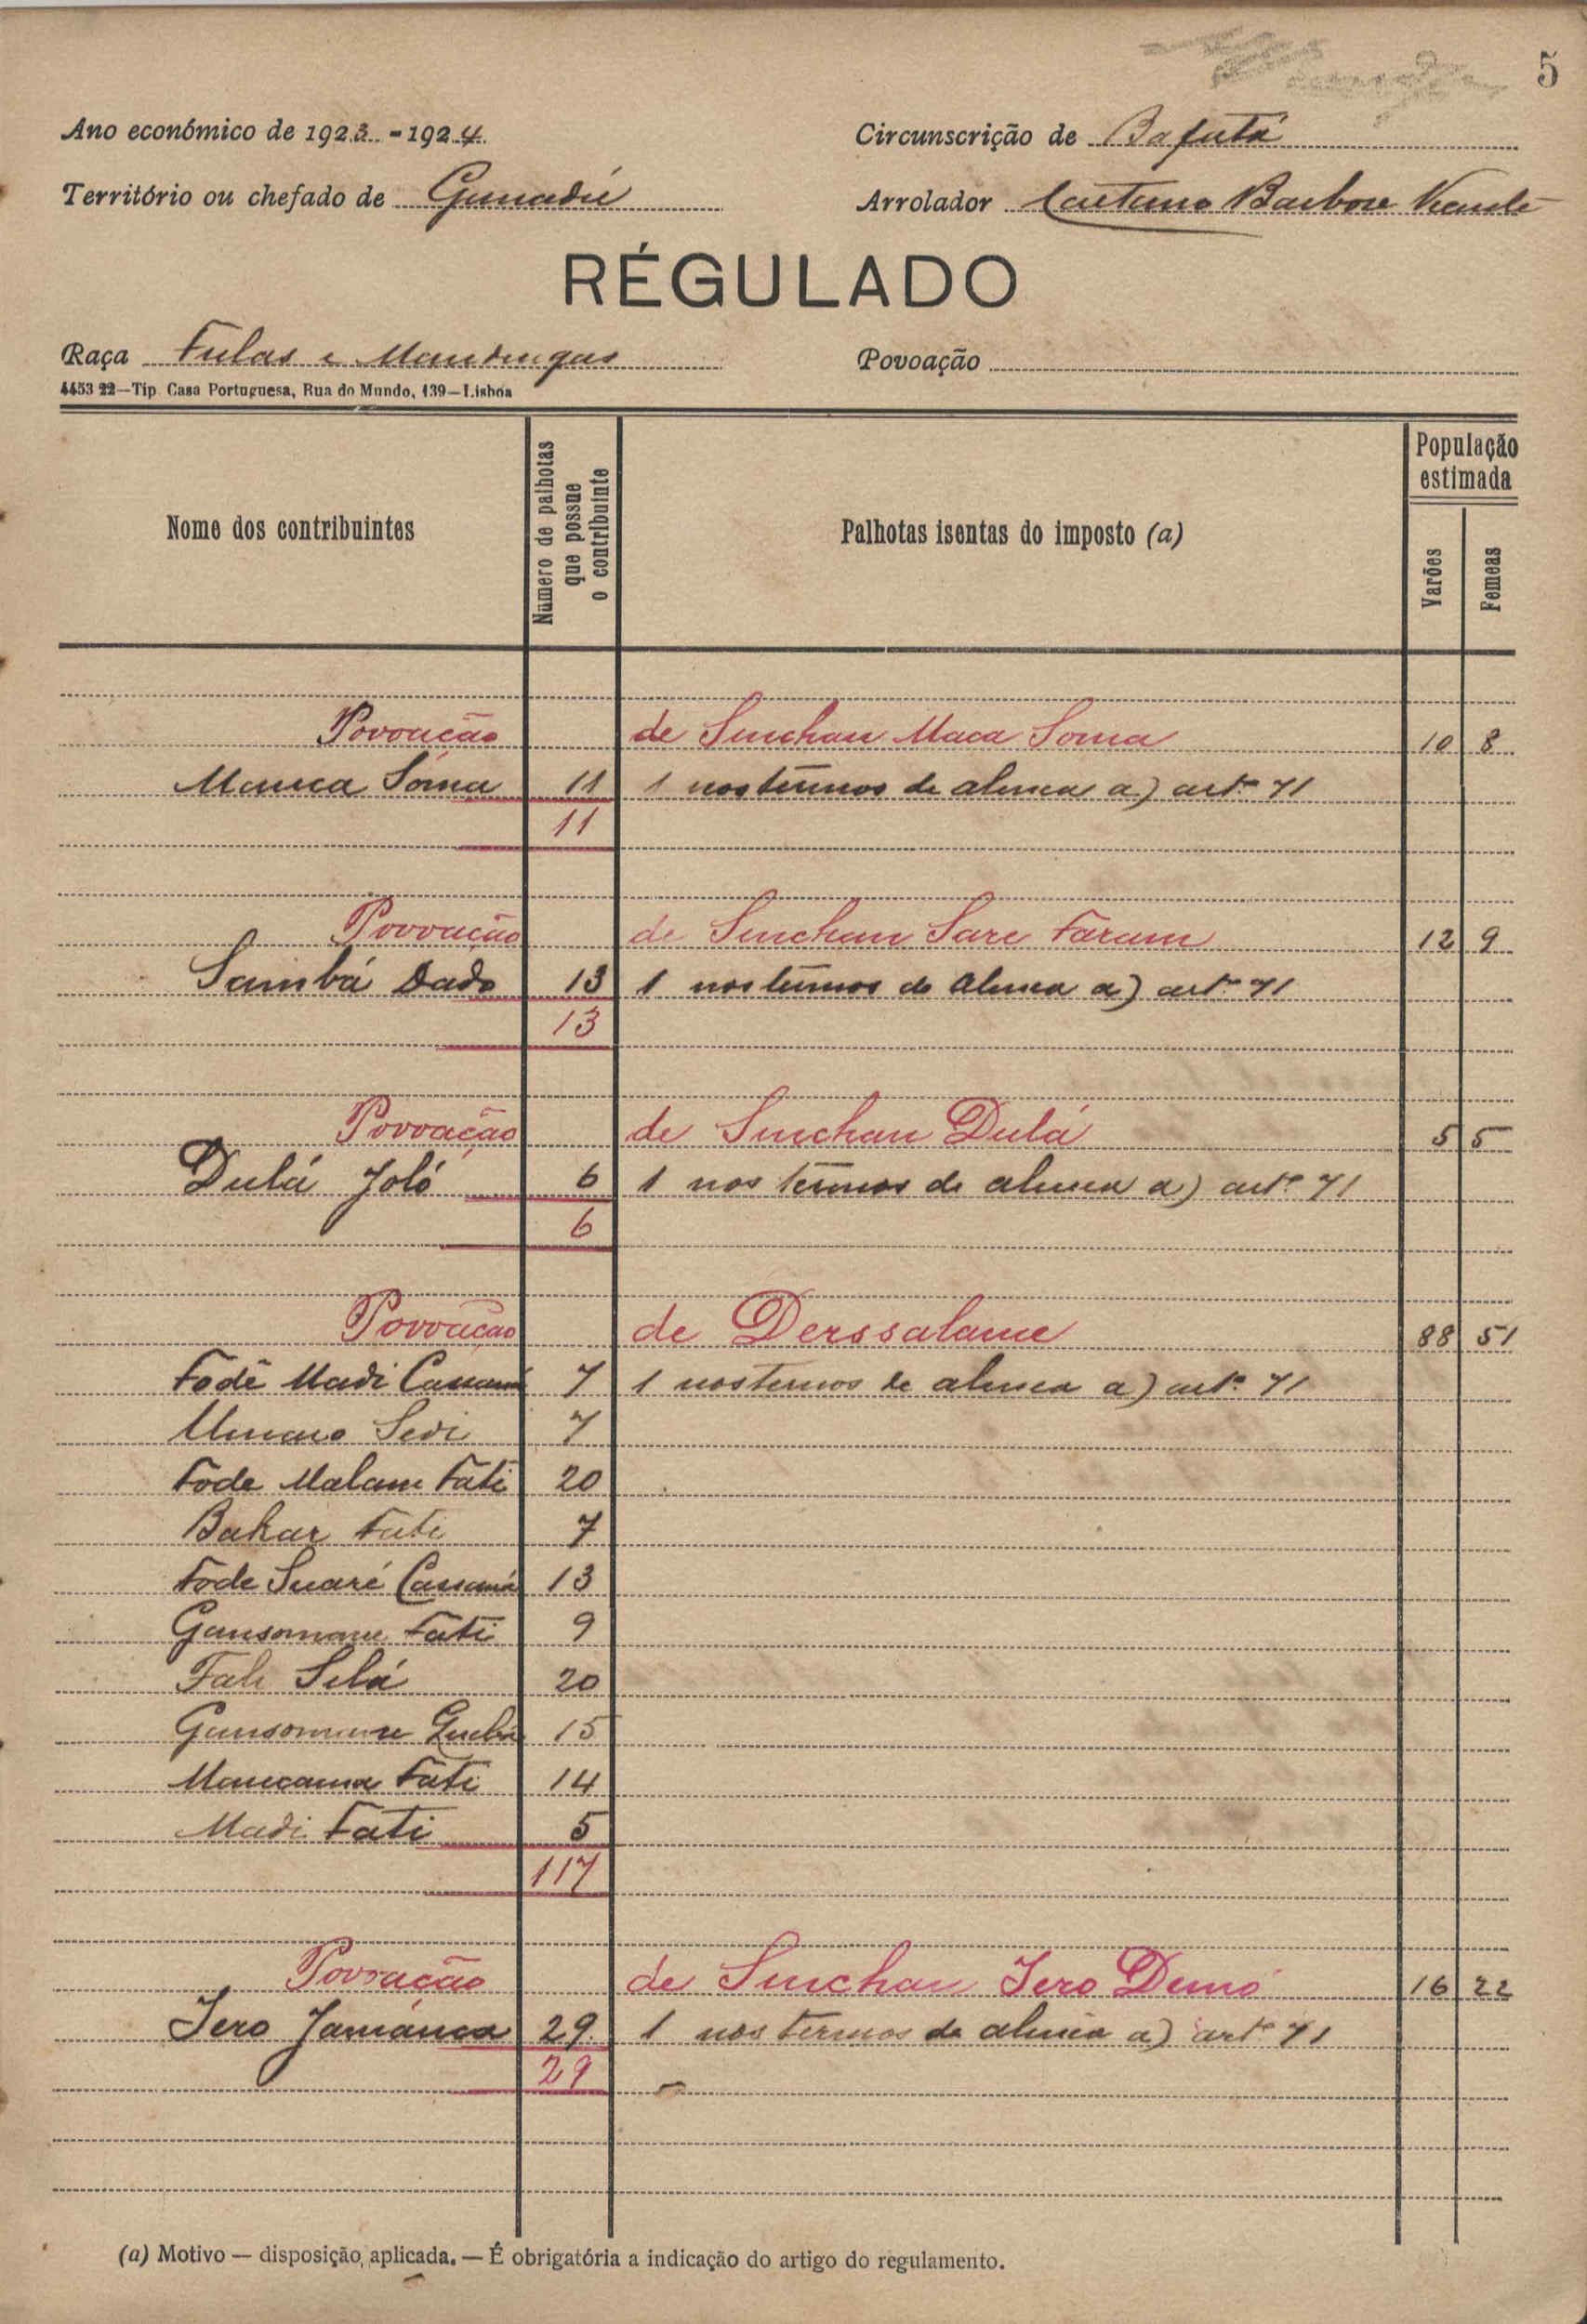 5
Ano económico de 1923 - 1924 Circunscrição de Bafatá
Território ou chefado de Ganadú Arrolador Caetano Barbosa Vicente
RÉGULADO
Raça Fulas e Mandingas Povoação
4453 22—Tip. Casa Portuguesa, Rua do Mundo, 139—Lisboa
Nome dos contribuintes Número de palhotas que possue o contribuinte Palhotas isentas do imposto (a) População estimada Varões Femeas
Povoação de Sinchan Maca Soma 10 8
Manca Soma 11 1 nos termos de alinea a) artº 71
11
Povoação de Sinchan Sare Faram 12 9
Sambá Dado 13 1 nos termos de alinea a) artº 71
13
Povoação de Sinchan Dulá 5 5
Dulá Joló 6 1 nos termos de alinea a) artº 71
6
Povoação de Derssalame 88 51
Fodê Madi Cassamá 7 1 nos termos de alinea a) artº 71
Umaro Sedi 7
Fode Malam Fati 20
Bakar Fati 7
Fode Suaré Cassamá 13
Gansomane Fati 9
Fali Selá 20
Gansomane 15
Mancama Fati 14
Madi Fati 5
117
Povoação de Sinchan Iero Demó 16 22
Iero Jamanca 29 1 nos termos de alinea a) artº 71
29
(a) Motivo — disposição aplicada. — É obrigatória a indicação do artigo do regulamento.